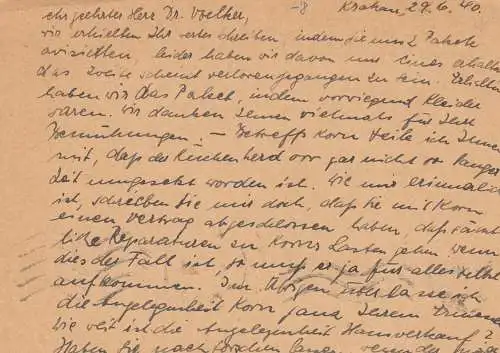 Krakau, 29.6.40.
Sehr geehrter Herr Dr. Voelker,
wir erhielten Ihr erstes schreiben, indem Sie uns 2 Pakete
avisietten, leider haben wir davon nur eines erhalten
das zweite scheint verlorengegangen zu sein. Erhalten
haben wir das Paket, indem vorwiegend Kleider
waren. Wir danken Ihnen vielmals für Ihre
Bemühungen. – Betreffs Korn teile ich Ihnen
mit, daß der Küchenherd vor gar nicht so langer
Zeit umgesetzt worden ist. Wie mir erinnerlich
ist, schreiben Sie mir doch, daß Sie mit Korn
einen Vertrag abgeschlossen haben, daß sämt
liche Reparaturen zu Korns Lasten gehen. Wenn
dies der Fall ist, so muß er ja für alles selbst
aufkommen. Im Übrigen überlasse ich
die Angelegenheit Korn ganz Ihrem
Wie weit ist die Angelegenheit Hausverkauf?
Haben Sie nach